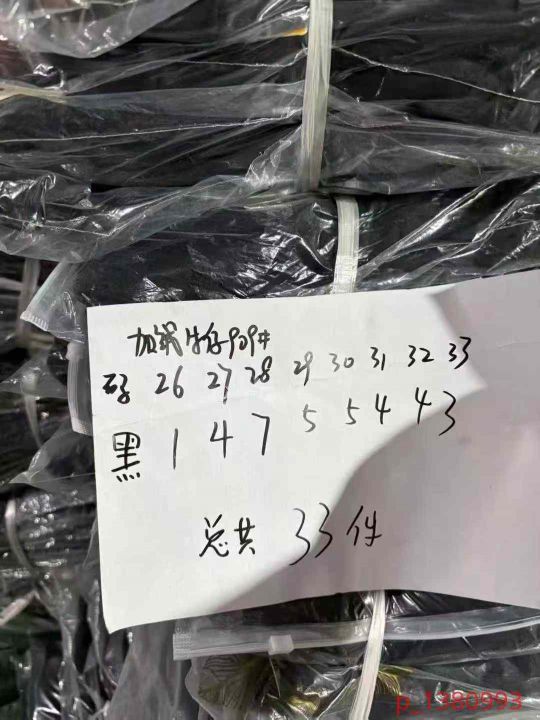 加绒牛仔909#
码 26 27 28 29 30 31 32 33
黑 1 4 7 5 5 4 4 3
总共 33件
p_1380993